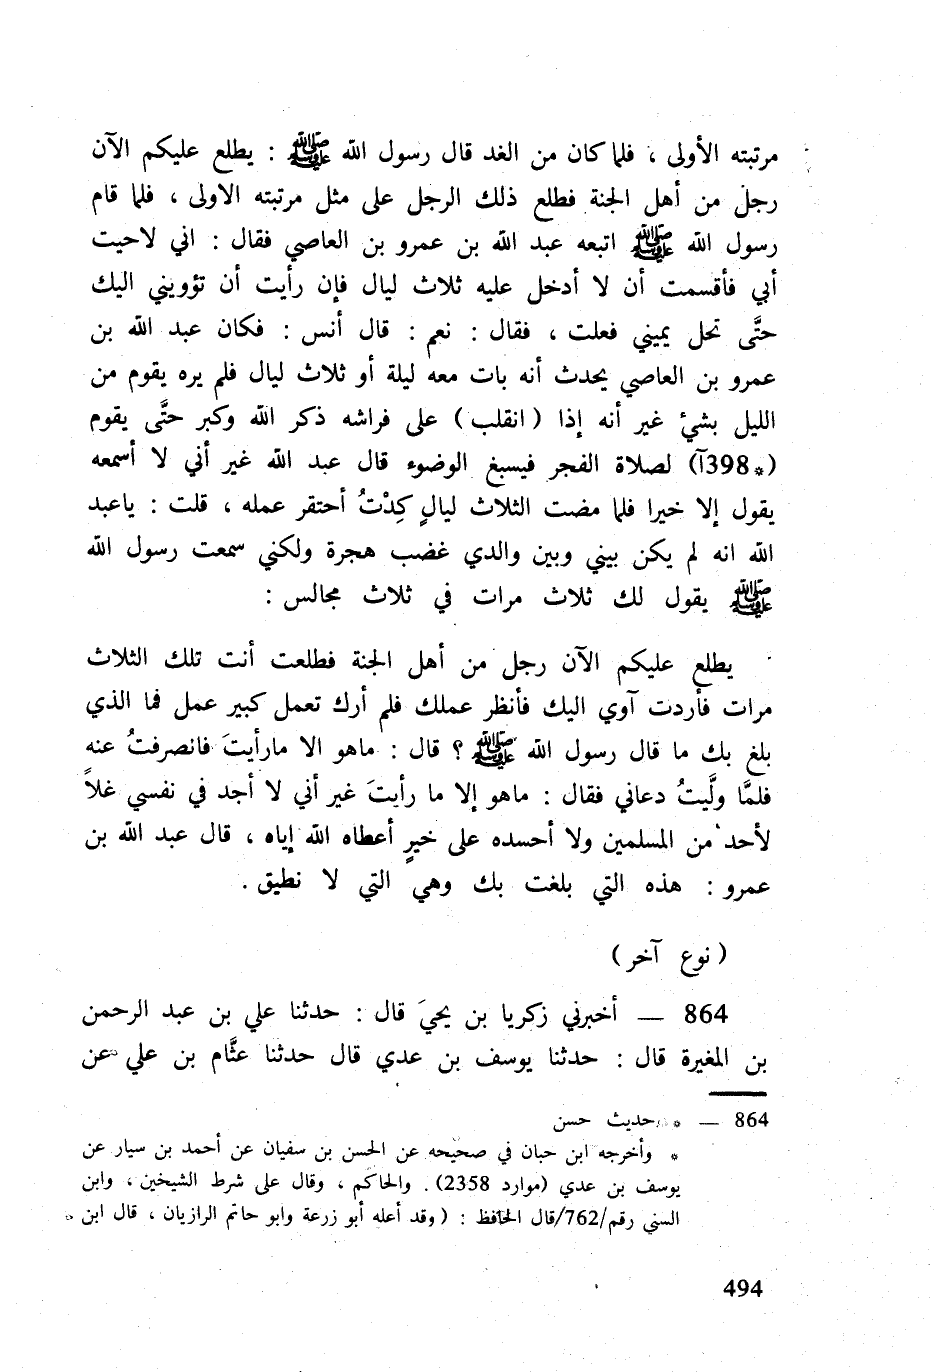 مرتبته الأولى ، فلما كان من الغد قال رسول الله ﷺ : يطلع عليكم الآن
رجل من أهل الجنة فطلع ذلك الرجل على مثل مرتبته الاولى ، فلما قام
رسول الله ﷺ اتبعه عبد الله بن عمرو بن العاصي فقال : اني لاحيت
أبي فأقسمت أن لا أدخل عليه ثلاث ليال فإن رأيت أن تؤويني اليك
حتَّى تحل يميني فعلت ، فقال : نعم : قال أنس : فكان عبد الله بن
عمرو بن العاصي يحدث أنه بات معه ليلة أو ثلاث ليال فلم يره يقوم من
الليل بشئ غير أنه إذا ( انقلب ) على فراشه ذكر الله وكبر حتَّى يقوم
(*398آ) لصلاة الفجر فيسبغ الوضوء قال عبد الله غير أني لا أسمعه
يقول إلا خيرا فلما مضت الثلاث ليالٍ كِدْتُ أحتقر عمله ، قلت : ياعبد
الله انه لم يكن بيني وبين والدي غضب هجرة ولكني سمعت رسول الله
ﷺ يقول لك ثلاث مرات في ثلاث مجالس :
يطلع عليكم الآن رجل من أهل الجنة فطلعت أنت تلك الثلاث
مرات فأردت آوي اليك فأنظر عملك فلم أرك تعمل كبير عمل فما الذي
بلغ بك ما قال رسول الله ﷺ ؟ قال : ماهو الا مارأيتَ فانصرفتُ عنه
فلمَّا ولَّيتُ دعاني فقال : ماهو إلا ما رأيتَ غير أني لا أجد في نفسي غلاً
لأحد من المسلمين ولا أحسده على خيرٍ أعطاه الله إياه ، قال عبد الله بن
عمرو : هذه التي بلغت بك وهي التي لا نطيق .
( نوع آخر )
864 — أخبرني زكريا بن يحيَ قال : حدثنا علي بن عبد الرحمن
بن المغيرة قال : حدثنا يوسف بن عدي قال حدثنا عثَّام بن علي عن
864 — * حديث حسن
* وأخرجه ابن حبان في صحيحه عن الحسن بن سفيان عن أحمد بن سيار عن
يوسف بن عدي (موارد 2358) . والحاكم ، وقال على شرط الشيخين ، وابن
السني رقم/762/قال الحافظ : ( وقد أعله أبو زرعة وابو حاتم الرازيان ، قال ابن
494